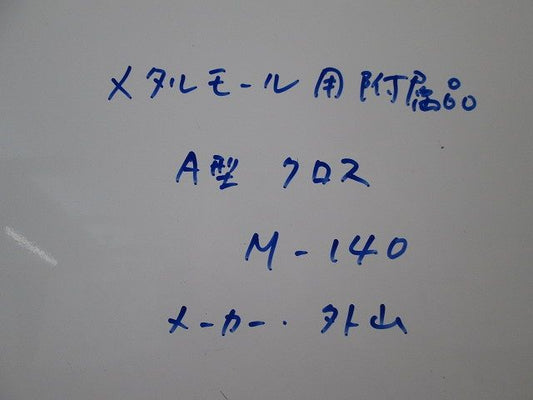 メタルモール用附属品
A型 クロス
M-140
メーカー. 外山